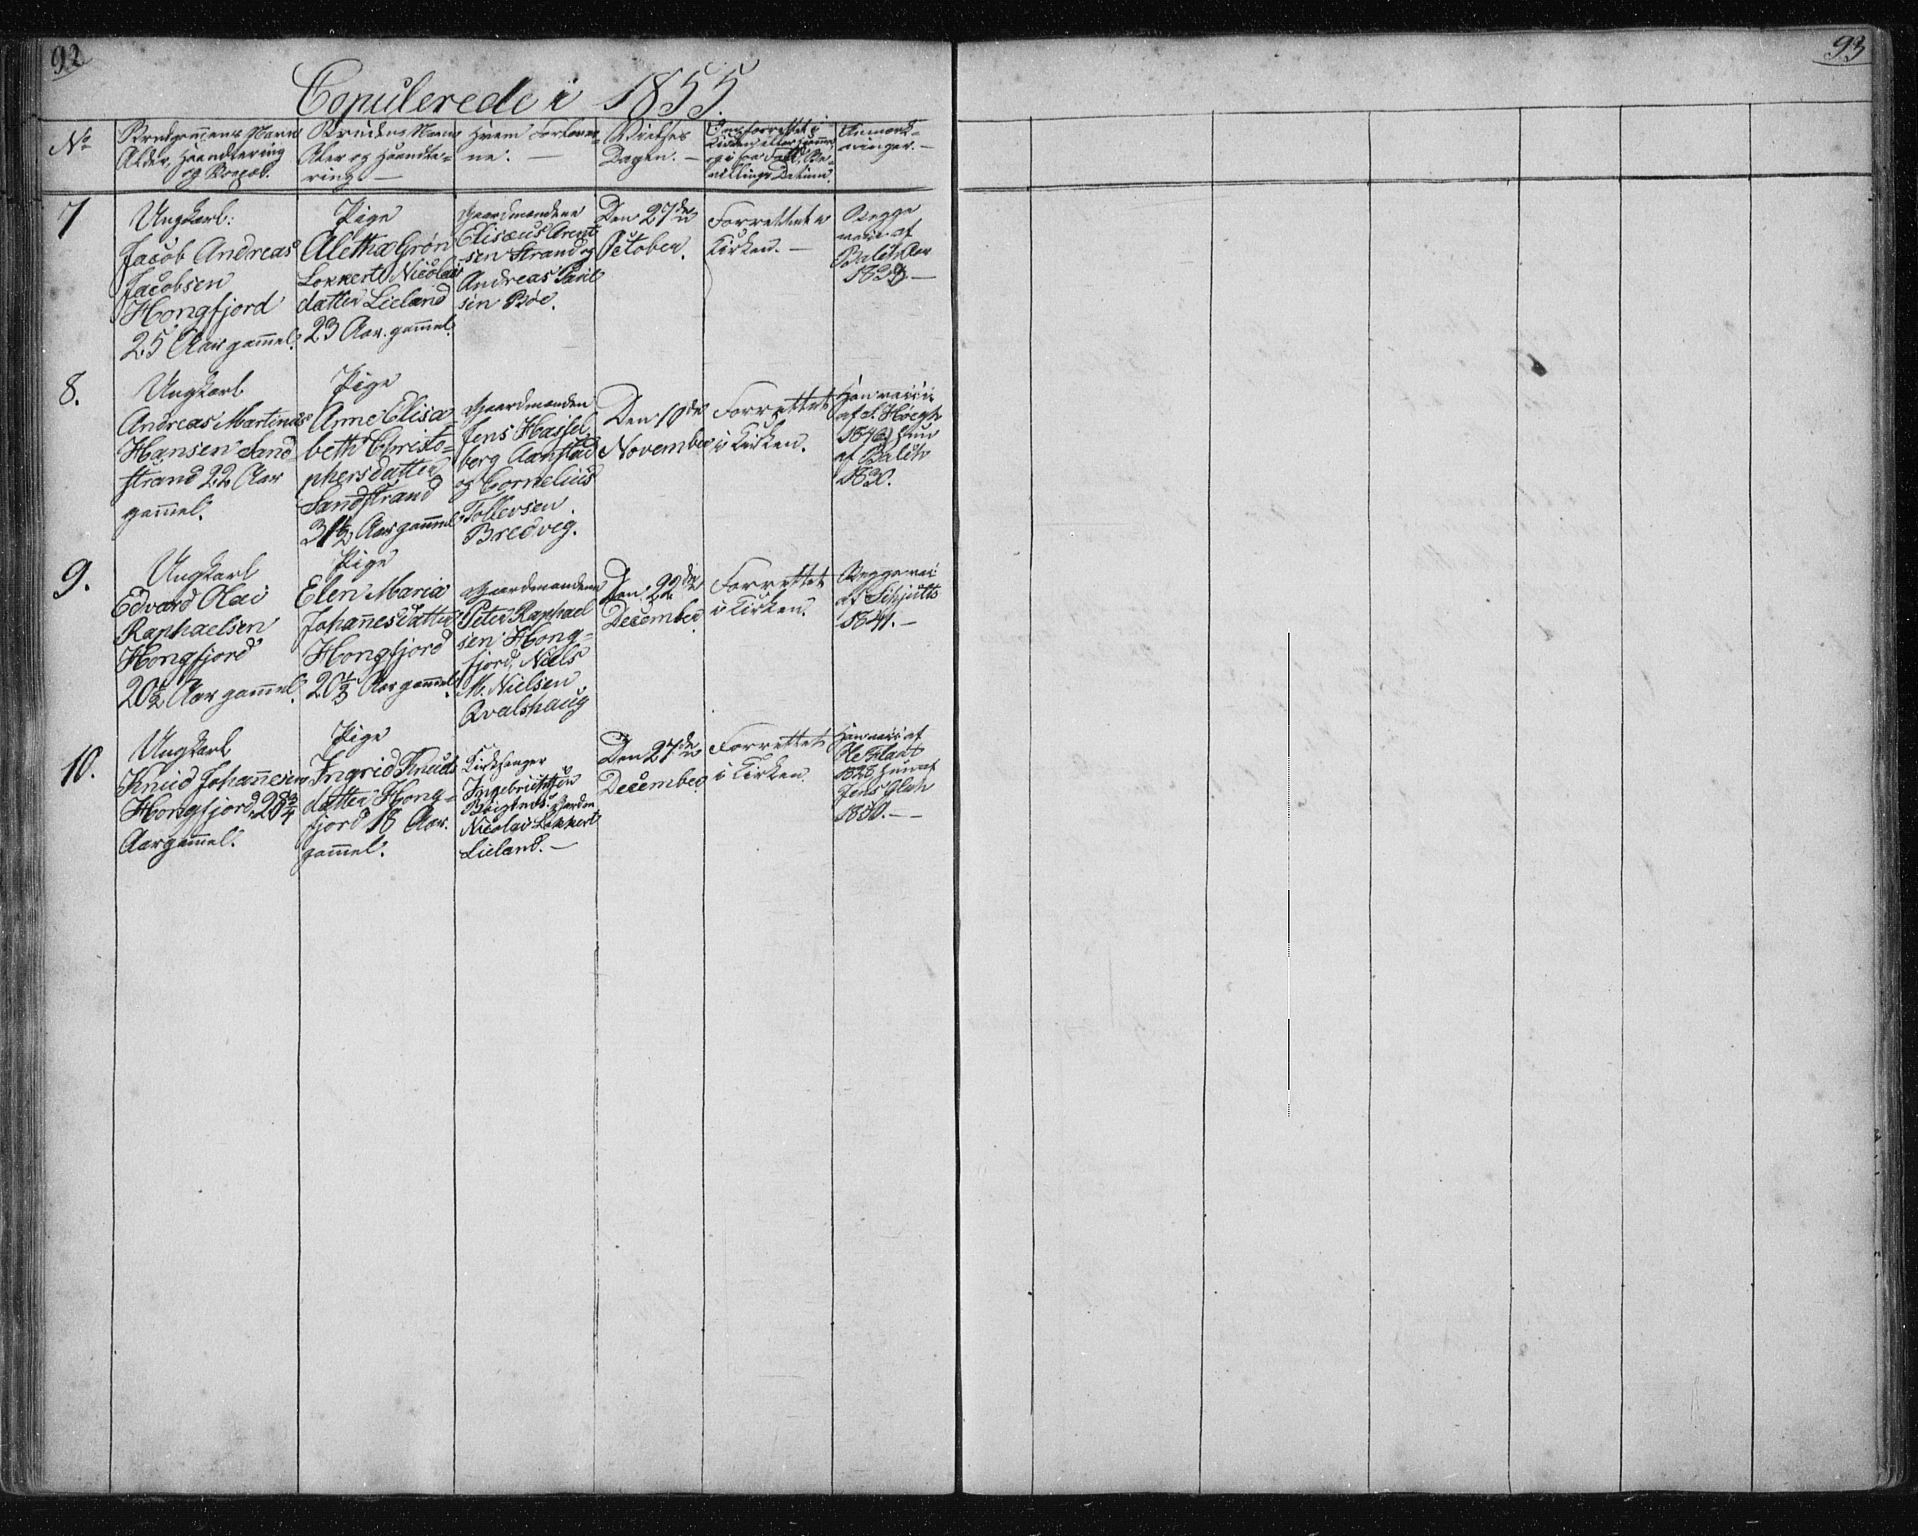 92
93
Copulerede i 1855.
No
Brudgommens Navn
Alder, Haandtering
og Bopæl.
Brudens Navn
Alder og Haandte-
ring. —
Hvem Forlover-
ne. —
Vielses
Dagen. —
Om forrettet i
Kirken eller hjemme,
og i saa Fald, Be-
villings Datum.
Anmærk-
ninger. —
7
Ungkarl:
Jacob Andreas
Jacobsen
Hongfjord
25 Aar gammel.
Pige
Aletha Grøn
Lokkert Nicolai
datter Lieland
23 Aar. gammel.
Gaardmændene
Elisæus Arent
sen Strand og
Andreas
sen Bøe.
Den 27de
October.
Forrettet i
Kirken. —
Begge
vacc. af
Balch Aar
8.
Ungkarl
Andreas Martinus
Hansen Sand
strand 22 Aar
gammel.
Pige
Anne Elisa-
beth Christo-
phersdatter
Sandstrand
31½ Aar gammel
Gaardmanden
Jens Hassel
berg Aanstad
og Cornelius
Tollevsen
Bredveg.
Den 10de
November
Forrettet
i Kirken.
Han vacc.
af S. Høegh
1846, hun
af Balch
1830.
9.
Ungkarl
Edvard Olai
Raphaelsen
Hongfjord
20½ Aar gammel.
Pige
Elen Maria
Johannesdatter
Hongfjord
20⅓ Aar gammel.
Gaardmændene
Peter Raphael
sen Hong-
fjord, Niels
M. Nielsen
Qvalshaug
Den 22de
December
Forrettet
i Kirken.
Begge vac:
af Schjelts
1841. —
10.
Ungkarl
Knud Johannesen
Hongfjord, 28¾
Aar gammel.
Pige
Ingrid Knuds
datter Hong-
fjord 18 Aar.
gammel.
Kirkesanger
Ingebrigtsen
Nicolai Lokkert
Lieland. —
Den 27de
December
Forrettet
i Kirken
Han vacc: af
1828, hun af
Jens